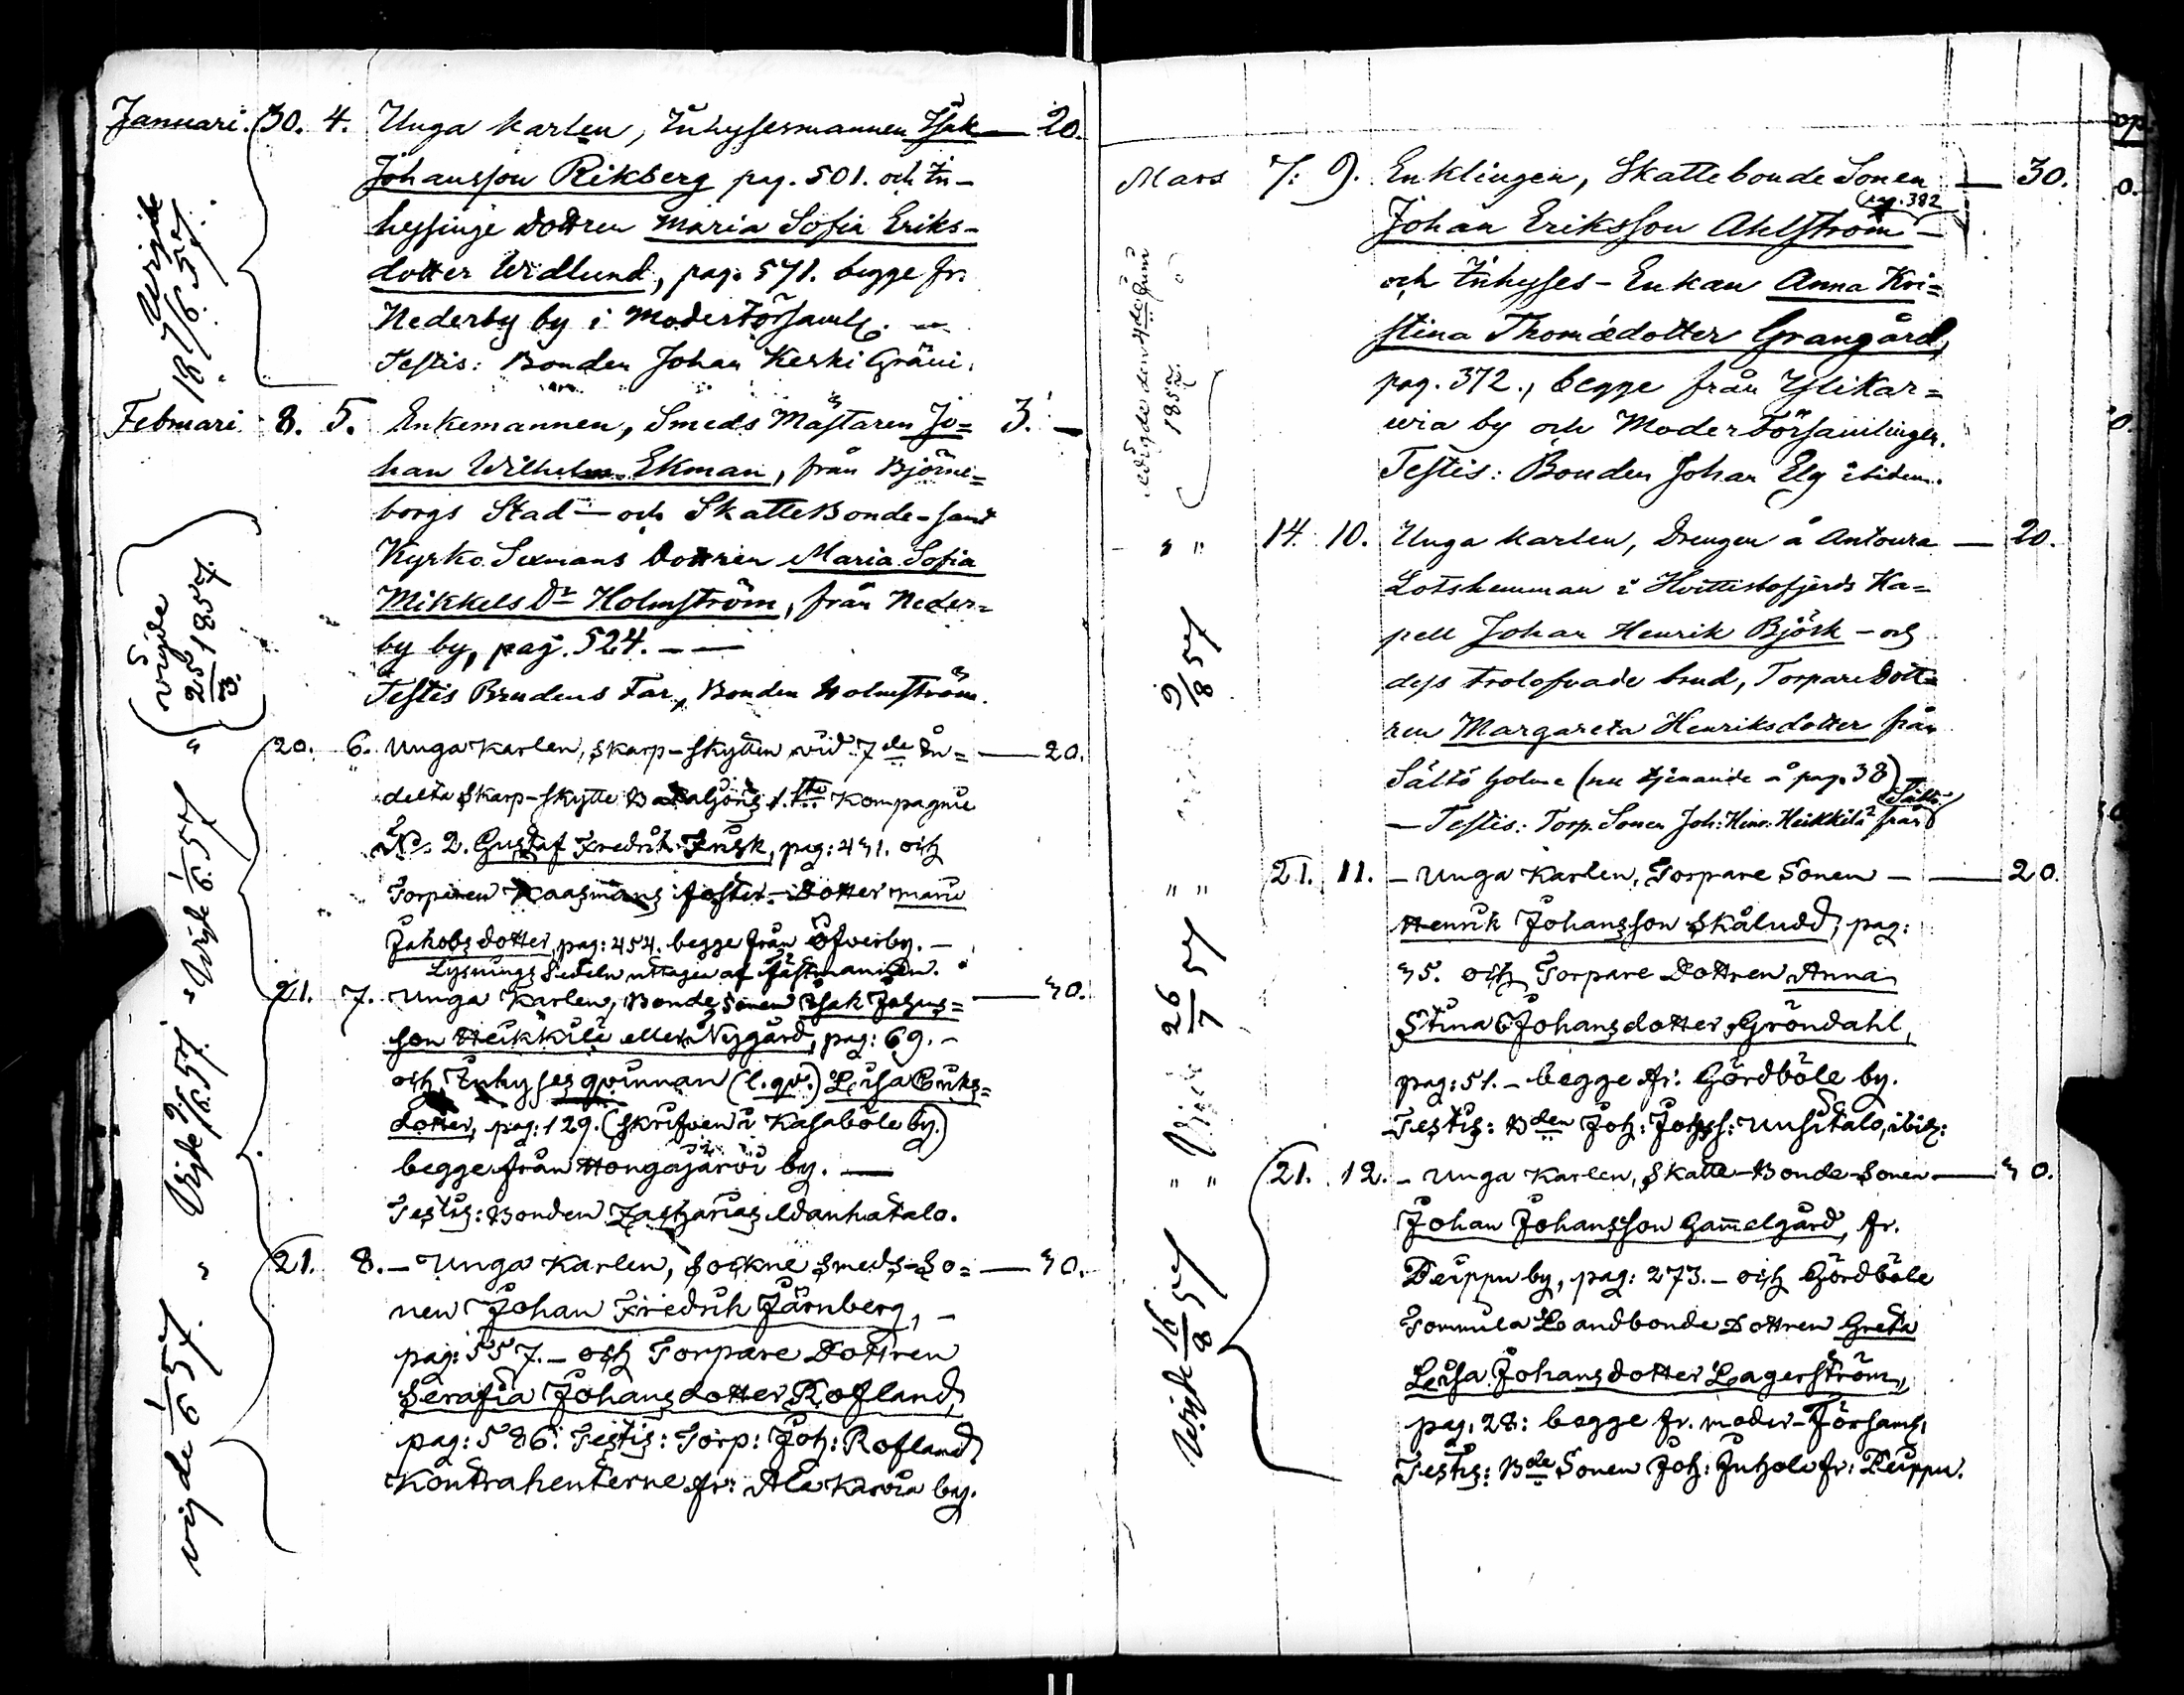 Januari. 30. 4. Unga karlen, Inhysesmannen Isak — 20.
Johansson Rikberg pag. 501. och In-
hysinge Dottren Maria Sofia Eriks-
dotter Widlund, pag. 571. begge fr.
Nederby by i Moderförsaml.
Testis: Bonden Johan Keski Gräni.
Vigde 18 7/6 57.
Februari 8. 5. Enkemannen, Smeds Mästaren Jo= 3. —
han Wilhelm Ekman, från Björne=
borgs Stad — och SkatteBonde-samt
Kyrko Sexmans Dottren Maria Sofia
Mikkels Dr Holmström, från Neder=
by by, pag. 524. — —
Testis Brudens Far, Bonden Holmström.
vigde 25/3 1857.
" 20. 6. Unga Karlen, Skarp-skytten vid 7de In= — 20.
delta Skarp-skytte Bataljons 1.sta Kompagnie
No. 2. Gustaf Fredrik Frisk, pag: 431. och
Torparen Kaasmans foster-Dotter Maria
Jakobsdotter, pag: 454. begge från Öfverby. —
Lysnings Sedeln uttagen af fästmannen.
Vigde 1/6 57
" 21. 7. Unga Karlen, Bonde Sonen Isak Johans= — 30.
son Heikkilä eller Nygård, pag: 69. —
och Inhyses qvinnan (l. qv.) Lisa Eriks=
dotter, pag: 129. (skrifven i Kasaböle by.)
begge från Hongajärvi by. —
Testis: Bonden Zacharias Wanhatalo.
Vigde 9/6 57.
" 21. 8. — Unga Karlen, Sockne Smeds-So= — 30.
nen Johan Fredrik Järnberg, —
pag: 557. — och Torpare Dottren
Serafia Johansdotter Rofland,
pag: 586. Testis: Torp: Joh: Rofland
Kontrahenterne fr: Ala Karvia by.
vigde 1/6 57.
Mars 7. 9. Enklingen, Skattebonde Sonen — 30.
pag. 382
Johan Eriksson Ahlström —
och Inhyses-Enkan Anna Kri=
stina Thomædotter Grangård,
pag. 372., begge från Ylikar=
via by och Moderförsamlingen.
Testis: Bonden Johan Elg ibidem.
vigde den 4de Juni 1857.
" " 14. 10. Unga karlen, Drengen å Antoura — 20.
Lotshemman i Hvittisbofjerds Ka=
pell Johan Henrik Björk — och
dess trolofvade brud, Torpare Dott=
ren Margareta Henriksdotter från
Sältö holme (nu tjenande å pag. 38)
— Testis: Torp. Sonen Joh: Henr: Heikkilä från Sältö
9/8 57
" " 21. 11. — Unga Karlen, Torpare Sonen — — 20.
Henrik Johansson Skåludd, pag:
35. och Torpare Dottren Anna
Stina Johansdotter Gröndahl,
pag: 51. — begge fr: Gördböle by.
Testis: Bden Joh: Johss: Unsitalo, ibid:
Vigde 26/7 57
" " 21. 12. — Unga Karlen, Skatte-Bonde-Sonen — 30.
Johan Johansson Gam̅elgård, fr.
Peippu by, pag: 273. — och Gördböle
Tommila Landbonde Dottren Greta
Lisa Johansdotter Lagerström,
pag: 28: begge fr. moder-Församl.
Testis: Bde Sonen Joh: Juhola fr: Peippu.
Vigde 16/8 57